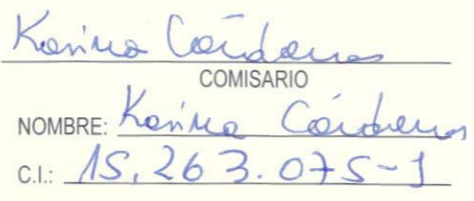 Karina Cárdenas
COMISARIO
NOMBRE: Karina Cárdenas
C.I.: 15.263.075-1